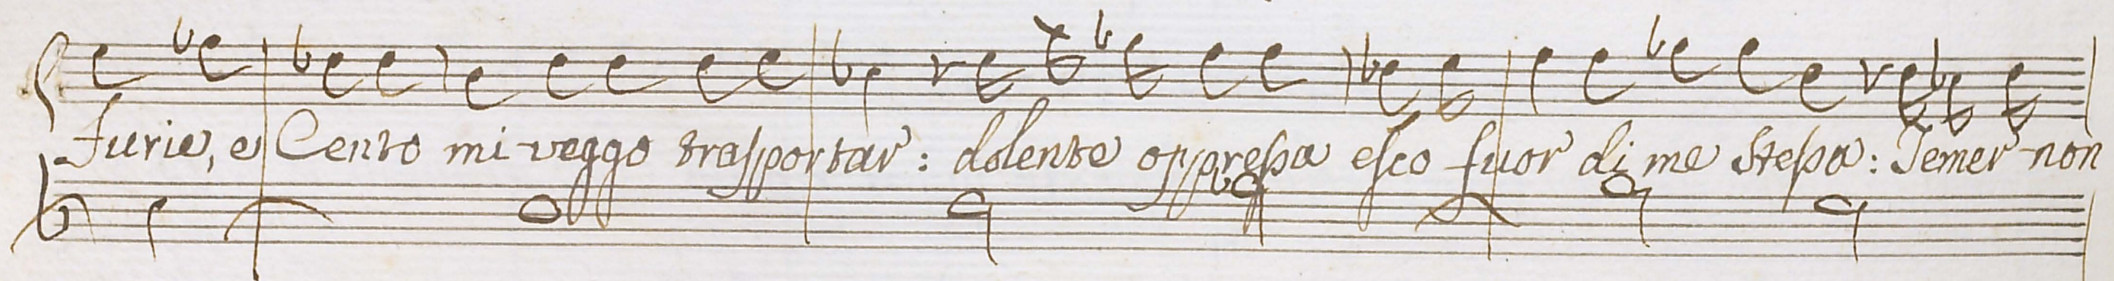 furie, e Cento mi veggo trasportar: dolente oppressa esco fuor di me stessa: Temer non